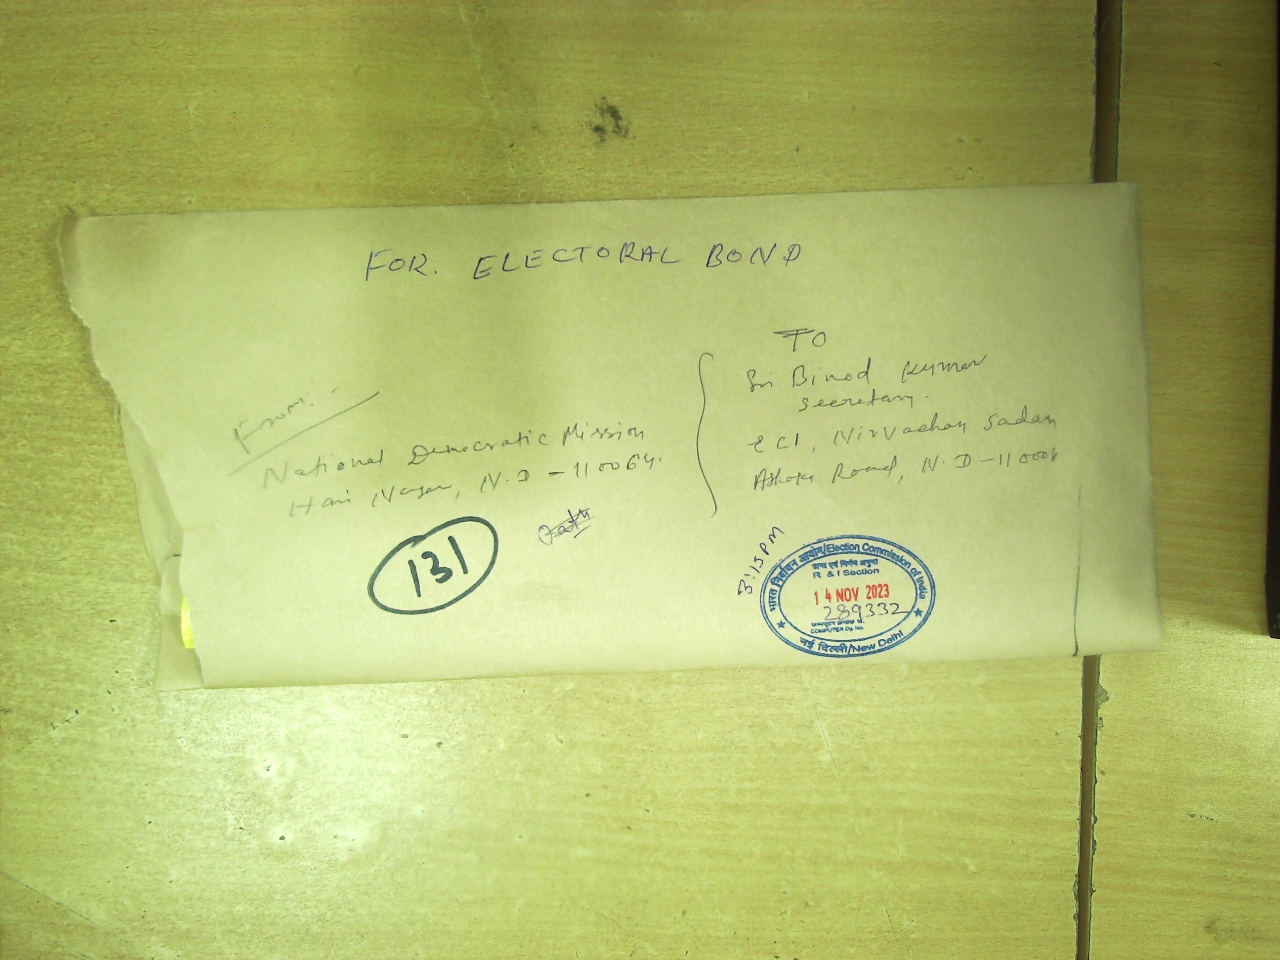 FOR. ELECTORAL BOND
From:
National Democratic Mission
Hari Nagar, N.D - 110064.
TO
Sri Binod Kumar
Secretary.
ECI, Nirvachan Sadan
Ashoka Road, N.D - 110001
131
3:15 PM
भारत निर्वाचन आयोग/Election Commission of India
प्राप्त एवं निर्गम अनुभाग
R & I Section
14 NOV 2023
289332
COMPUTER Dy. No.
नई दिल्ली/New Delhi